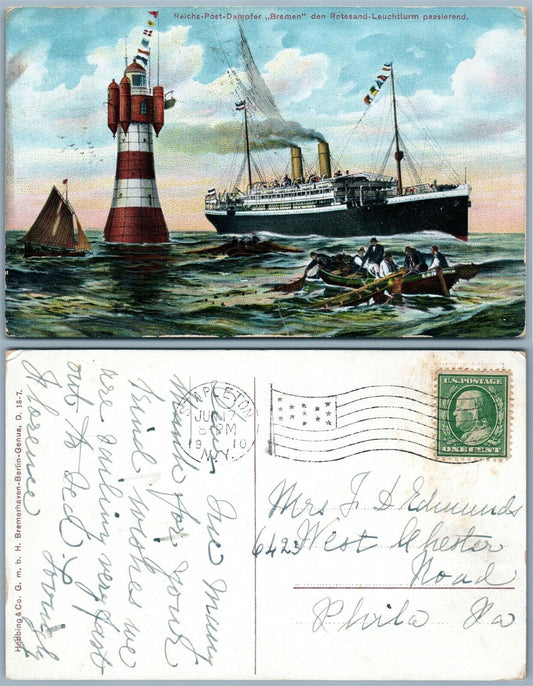 Reichs-Post-Dampfer „Bremen" den Rotesand-Leuchtturm passierend.
STAPLETON
JUN 17
8 PM
1910
N.Y.
U.S. POSTAGE
ONE CENT
Mrs F D Edmunds
6423 West Chester
Road
Phila Pa
many
thank for your
kind wishes we
are sailing very fast
out to sea. Lovingly
Florence
Höbbing & Co. G. m. b. H. Bremerhaven-Berlin-Genua, D. 15-7.